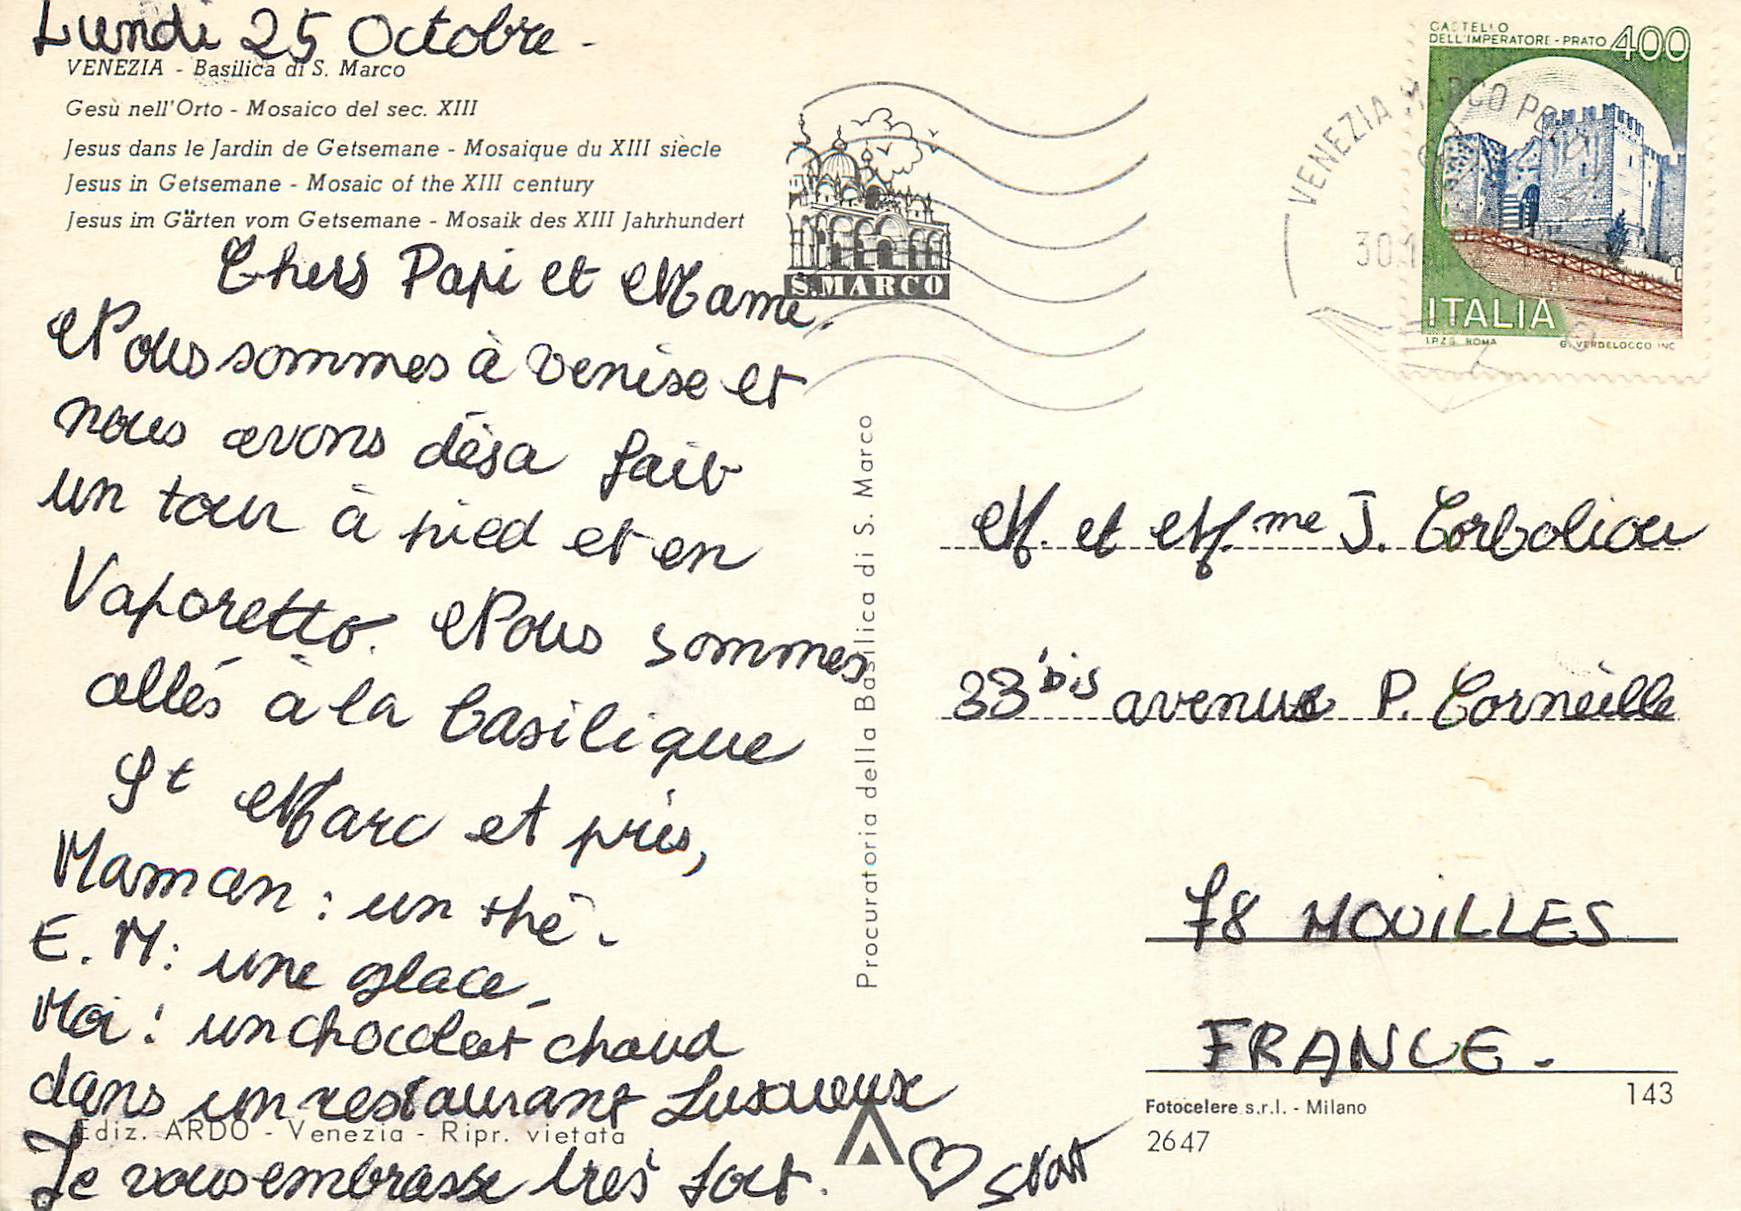 Lundi 25 Octobre -
VENEZIA - Basilica di S. Marco
Gesù nell'Orto - Mosaico del sec. XIII
Jesus dans le Jardin de Getsemane - Mosaique du XIII siècle
Jesus in Getsemane - Mosaic of the XIII century
Jesus im Gärten vom Getsemane - Mosaik des XIII Jahrhundert
Chers Papi et Mame.
Nous sommes à Venise et
nous avons désa fait
un tour à pied et en
Vaporetto. Nous sommes
allés à la basilique
St Marc et pris,
Maman : un thé -
E. M : une glace -
Moi : un chocolat chaud
dans un restaurant Luxueux
Je vous embrasse très fort.
Ediz. ARDO - Venezia - Ripr. vietata
Procuratoria della Basilica di S. Marco
S. MARCO
VENEZIA MARCO
30.1
CASTELLO
DELL'IMPERATORE - PRATO 400
ITALIA
I.P.Z.S. ROMA G. VERDELOCCO INC
M. et M.me J. Corboliou
33 bis avenue P. Corneille
78 MOUILLES
FRANCE -
Fotocelere s.r.l. - Milano
2647
143